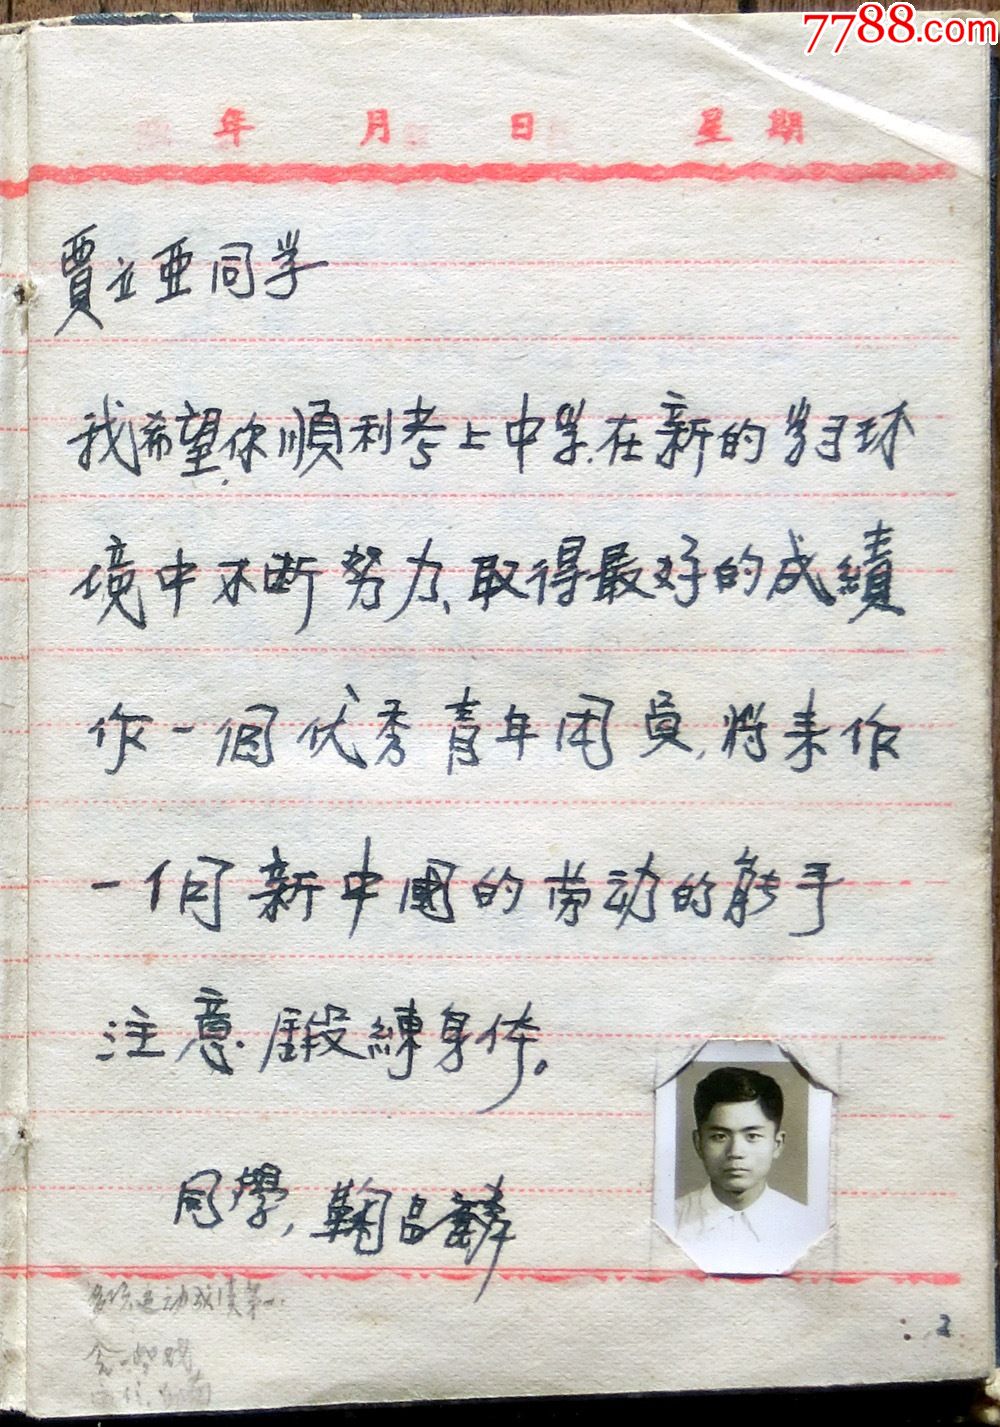 7788.com
年 月 日 星期
賈立亞同学
我希望你順利考上中学.在新的学习环
境中不断努力、取得最好的成績
作一個优秀青年团員,将来作
一個新中國的劳动的能手
注意鍛練身体。
同學,鞠昌麟
运动成绩第一.
2